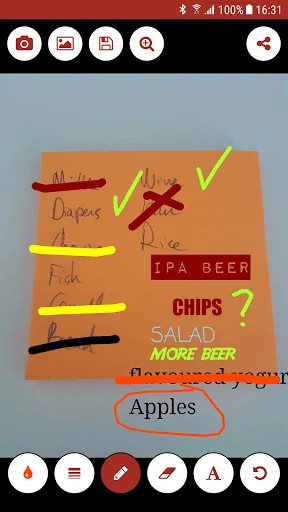 100% 16:31
Milk Wine
Diapers
Rice
Fish
IPA BEER
CHIPS ?
Bread
SALAD
MORE BEER
flavoured yogur
Apples
A